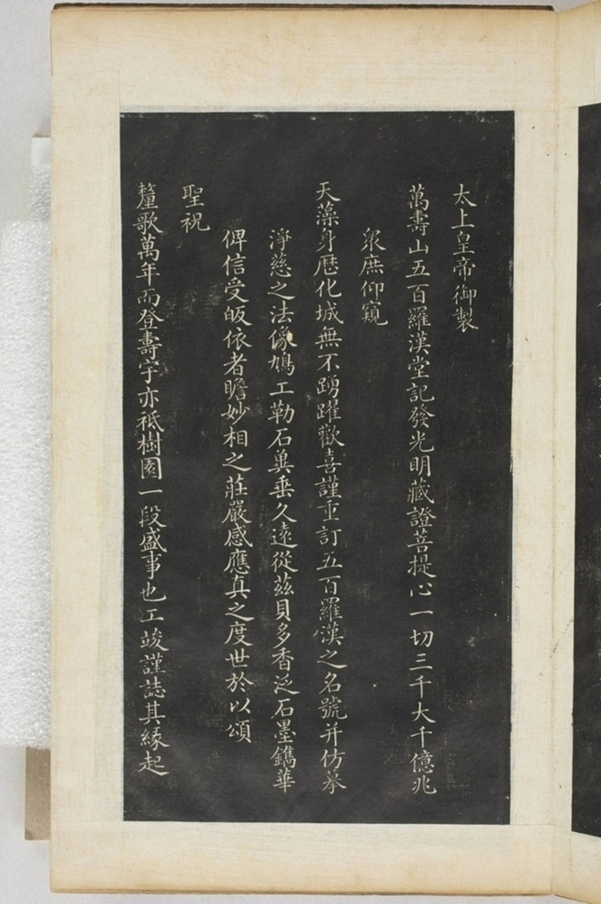 太上皇帝御製
萬壽山五百羅漢堂記發光明藏證菩提心一切三千大千億兆
眾庶仰窺
天藻身歷化城無不踴躍歡喜謹重訂五百羅漢之名號并仿摹
淨慈之法像鳩工勒石冀垂久遠從茲貝多香泛石墨鐫華
俾信受皈依者瞻妙相之莊嚴感應真之度世於以頌
聖祝
釐歌萬年而登壽宇亦祇樹園一段盛事也工竣謹誌其緣起